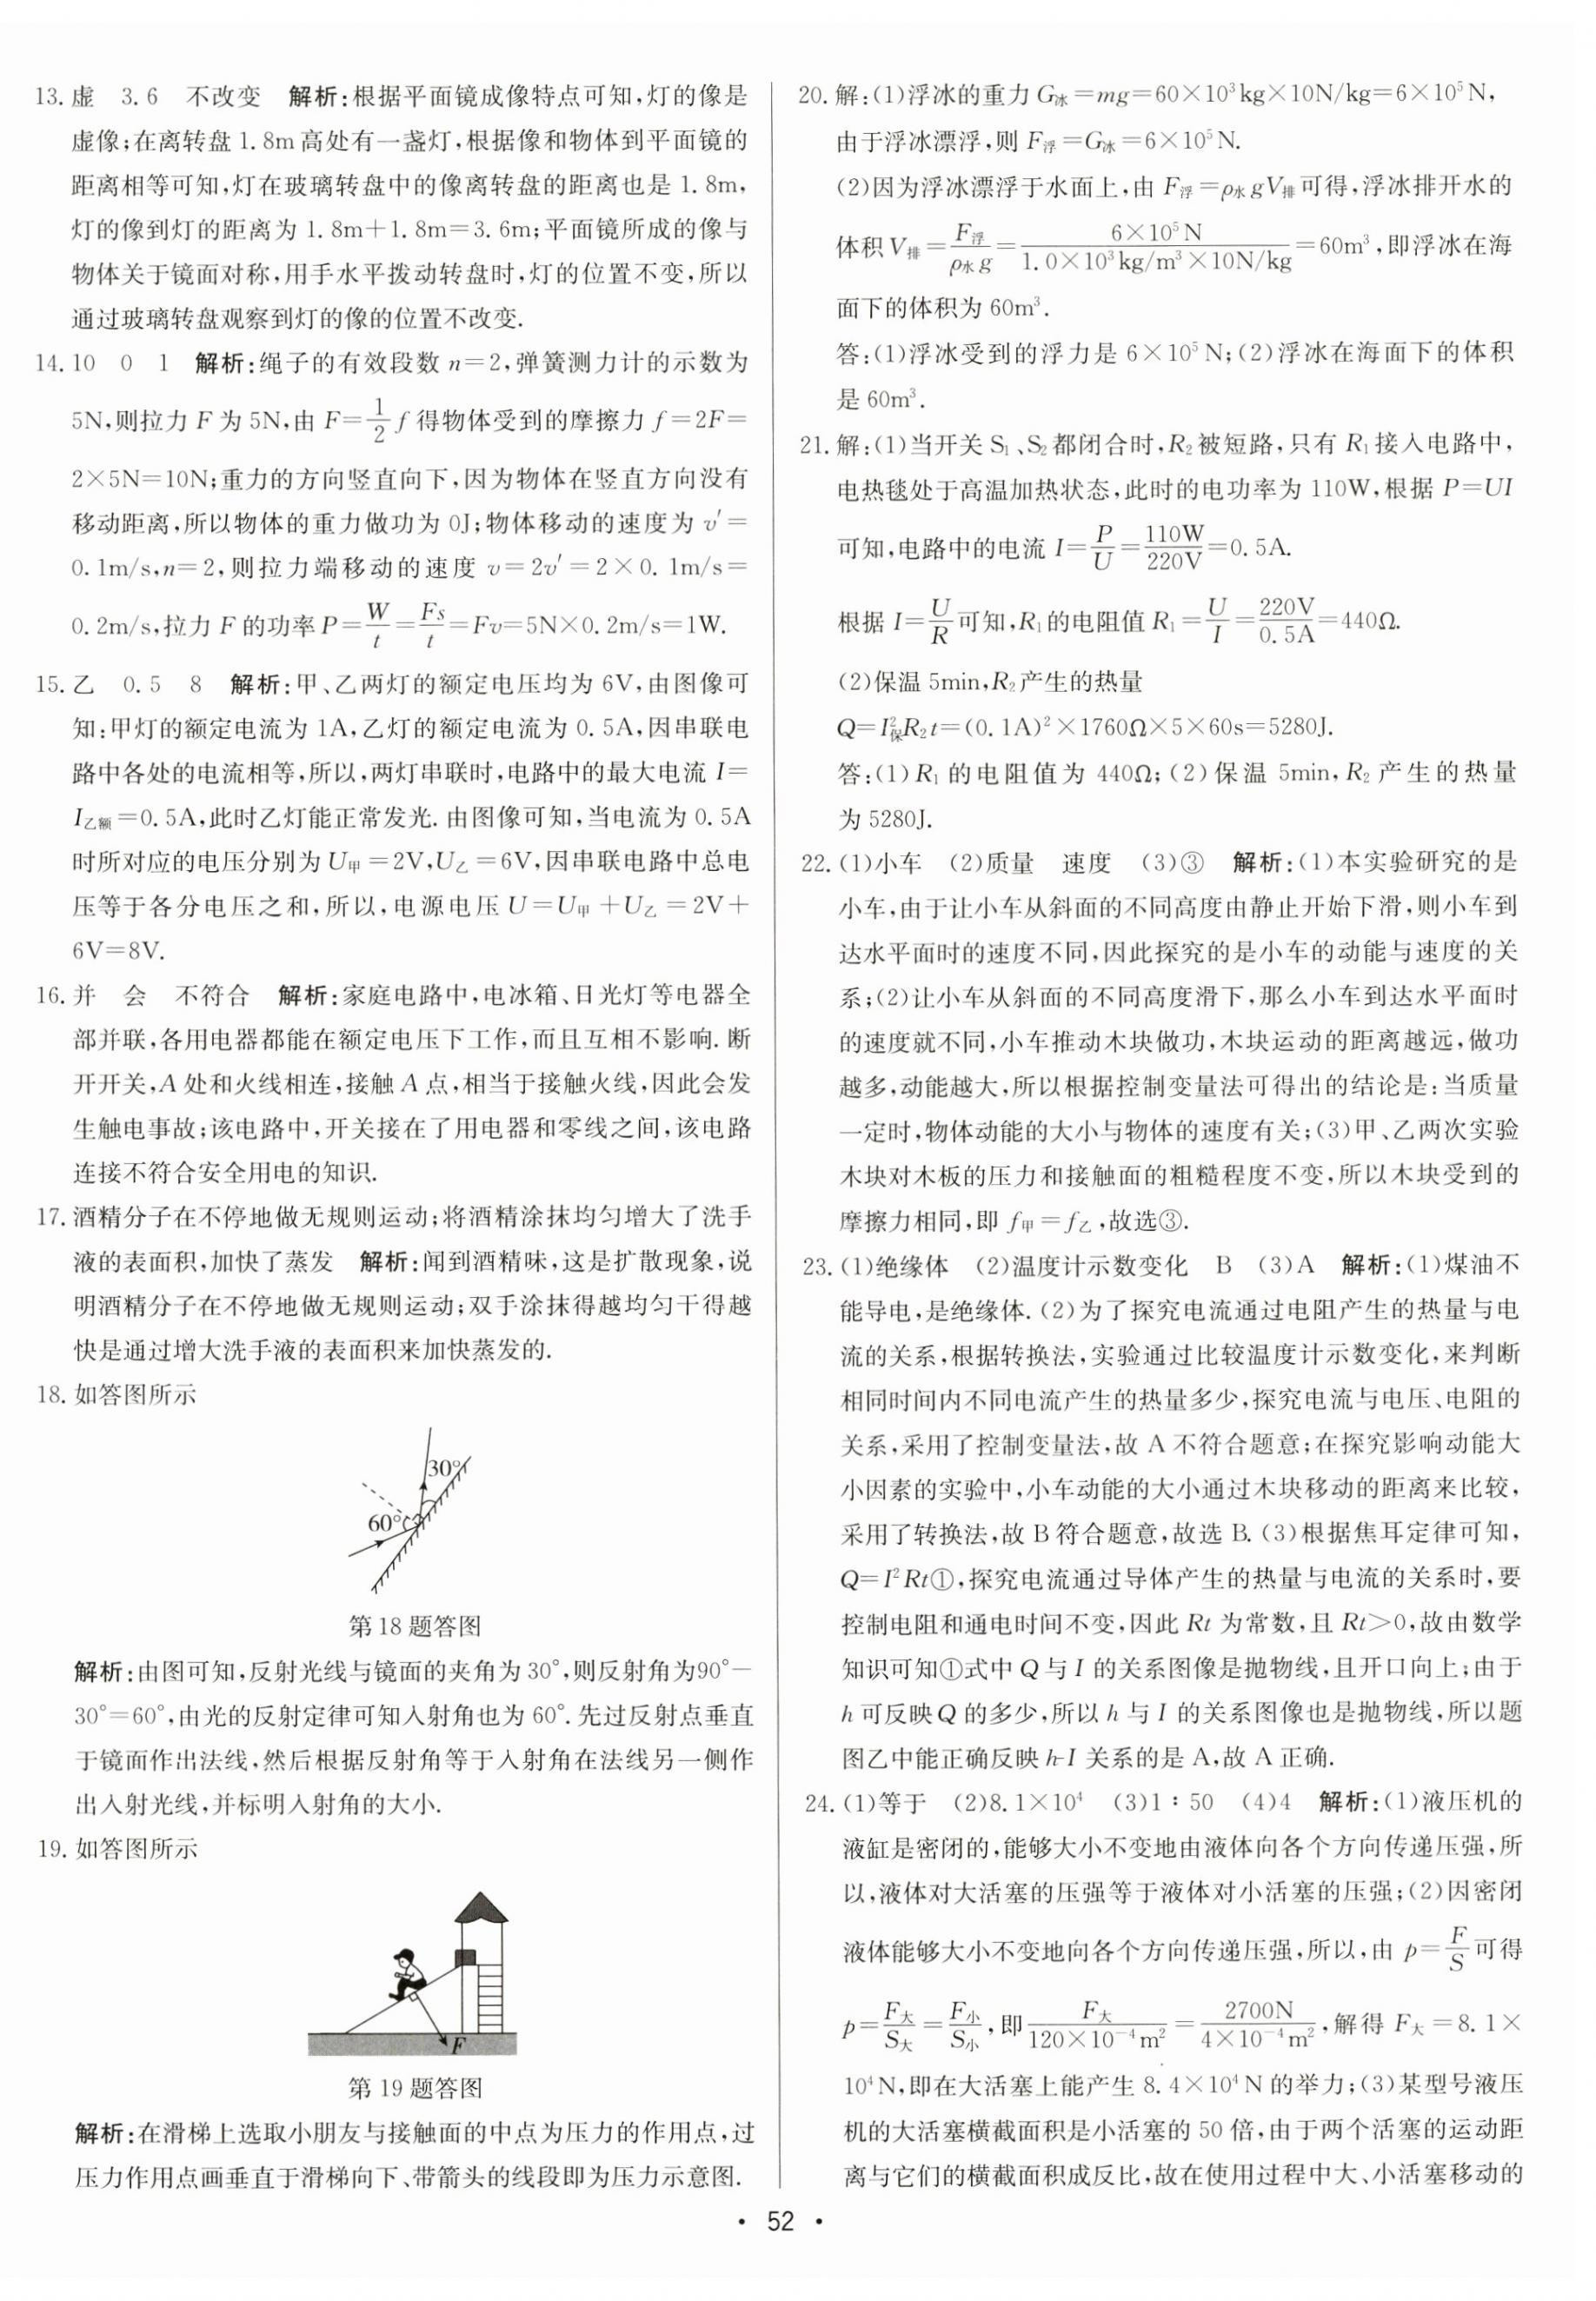 13. 虚　3.6　不改变　解析:根据平面镜成像特点可知,灯的像是
虚像;在离转盘1.8m高处有一盏灯,根据像和物体到平面镜的
距离相等可知,灯在玻璃转盘中的像离转盘的距离也是1.8m,
灯的像到灯的距离为1.8m+1.8m=3.6m;平面镜所成的像与
物体关于镜面对称,用手水平拨动转盘时,灯的位置不变,所以
通过玻璃转盘观察到灯的像的位置不改变.
14. 10　0　1　解析:绳子的有效段数n=2,弹簧测力计的示数为
5N,则拉力F为5N,由F=1/2 f得物体受到的摩擦力f=2F=
2×5N=10N;重力的方向竖直向下,因为物体在竖直方向没有
移动距离,所以物体的重力做功为0J;物体移动的速度为v′=
0.1m/s,n=2,则拉力端移动的速度v=2v′=2×0.1m/s=
0.2m/s,拉力F的功率P=W/t=Fs/t=Fv=5N×0.2m/s=1W.
15. 乙　0.5　8　解析:甲、乙两灯的额定电压均为6V,由图像可
知:甲灯的额定电流为1A,乙灯的额定电流为0.5A,因串联电
路中各处的电流相等,所以,两灯串联时,电路中的最大电流I=
I乙额=0.5A,此时乙灯能正常发光.由图像可知,当电流为0.5A
时所对应的电压分别为U甲=2V,U乙=6V,因串联电路中总电
压等于各分电压之和,所以,电源电压U=U甲+U乙=2V+
6V=8V.
16. 并　会　不符合　解析:家庭电路中,电冰箱、日光灯等电器全
部并联,各用电器都能在额定电压下工作,而且互相不影响.断
开开关,A处和火线相连,接触A点,相当于接触火线,因此会发
生触电事故;该电路中,开关接在了用电器和零线之间,该电路
连接不符合安全用电的知识.
17. 酒精分子在不停地做无规则运动;将酒精涂抹均匀增大了洗手
液的表面积,加快了蒸发　解析:闻到酒精味,这是扩散现象,说
明酒精分子在不停地做无规则运动;双手涂抹得越均匀干得越
快是通过增大洗手液的表面积来加快蒸发的.
18. 如答图所示
30°
60°
第18题答图
解析:由图可知,反射光线与镜面的夹角为30°,则反射角为90°-
30°=60°,由光的反射定律可知入射角也为60°.先过反射点垂直
于镜面作出法线,然后根据反射角等于入射角在法线另一侧作
出入射光线,并标明入射角的大小.
19. 如答图所示
F
第19题答图
解析:在滑梯上选取小朋友与接触面的中点为压力的作用点,过
压力作用点画垂直于滑梯向下、带箭头的线段即为压力示意图.
20. 解:(1)浮冰的重力G冰=mg=60×10³kg×10N/kg=6×10⁵N,
由于浮冰漂浮,则F浮=G冰=6×10⁵N.
(2)因为浮冰漂浮于水面上,由F浮=ρ水gV排可得,浮冰排开水的
体积V排=F浮/ρ水g=6×10⁵N/1.0×10³kg/m³×10N/kg=60m³,即浮冰在海
面下的体积为60m³.
答:(1)浮冰受到的浮力是6×10⁵N;(2)浮冰在海面下的体积
是60m³.
21. 解:(1)当开关S₁、S₂都闭合时,R₂被短路,只有R₁接入电路中,
电热毯处于高温加热状态,此时的电功率为110W,根据P=UI
可知,电路中的电流I=P/U=110W/220V=0.5A.
根据I=U/R可知,R₁的电阻值R₁=U/I=220V/0.5A=440Ω.
(2)保温5min,R₂产生的热量
Q=I²保R₂t=(0.1A)²×1760Ω×5×60s=5280J.
答:(1)R₁的电阻值为440Ω;(2)保温5min,R₂产生的热量
为5280J.
22. (1)小车　(2)质量　速度　(3)③　解析:(1)本实验研究的是
小车,由于让小车从斜面的不同高度由静止开始下滑,则小车到
达水平面时的速度不同,因此探究的是小车的动能与速度的关
系;(2)让小车从斜面的不同高度滑下,那么小车到达水平面时
的速度就不同,小车推动木块做功,木块运动的距离越远,做功
越多,动能越大,所以根据控制变量法可得出的结论是:当质量
一定时,物体动能的大小与物体的速度有关;(3)甲、乙两次实验
木块对木板的压力和接触面的粗糙程度不变,所以木块受到的
摩擦力相同,即f甲=f乙,故选③.
23. (1)绝缘体　(2)温度计示数变化　B　(3)A　解析:(1)煤油不
能导电,是绝缘体.(2)为了探究电流通过电阻产生的热量与电
流的关系,根据转换法,实验通过比较温度计示数变化,来判断
相同时间内不同电流产生的热量多少,探究电流与电压、电阻的
关系,采用了控制变量法,故A不符合题意;在探究影响动能大
小因素的实验中,小车动能的大小通过木块移动的距离来比较,
采用了转换法,故B符合题意,故选B.(3)根据焦耳定律可知,
Q=I²Rt①,探究电流通过导体产生的热量与电流的关系时,要
控制电阻和通电时间不变,因此Rt为常数,且Rt>0,故由数学
知识可知①式中Q与I的关系图像是抛物线,且开口向上;由于
h可反映Q的多少,所以h与I的关系图像也是抛物线,所以题
图乙中能正确反映h-I关系的是A,故A正确.
24. (1)等于　(2)8.1×10⁴　(3)1∶50　(4)4　解析:(1)液压机的
液缸是密闭的,能够大小不变地由液体向各个方向传递压强,所
以,液体对大活塞的压强等于液体对小活塞的压强;(2)因密闭
液体能够大小不变地向各个方向传递压强,所以,由p=F/S可得
p=F大/S大=F小/S小,即F大/120×10⁻⁴m²=2700N/4×10⁻⁴m²,解得F大=8.1×
10⁴N,即在大活塞上能产生8.4×10⁴N的举力;(3)某型号液压
机的大活塞横截面积是小活塞的50倍,由于两个活塞的运动距
离与它们的横截面积成反比,故在使用过程中大、小活塞移动的
• 52 •